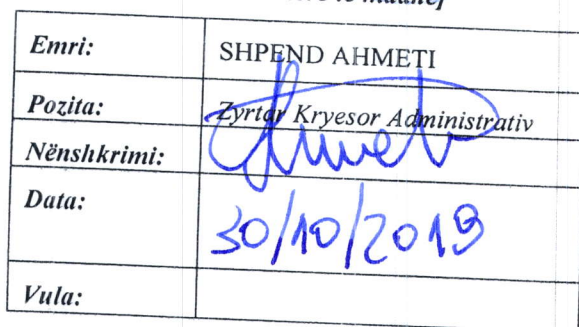 Emri: SHPEND AHMETI
Pozita: Zyrtar Kryesor Administrativ
Nënshkrimi:
Data: 30/10/2019
Vula: